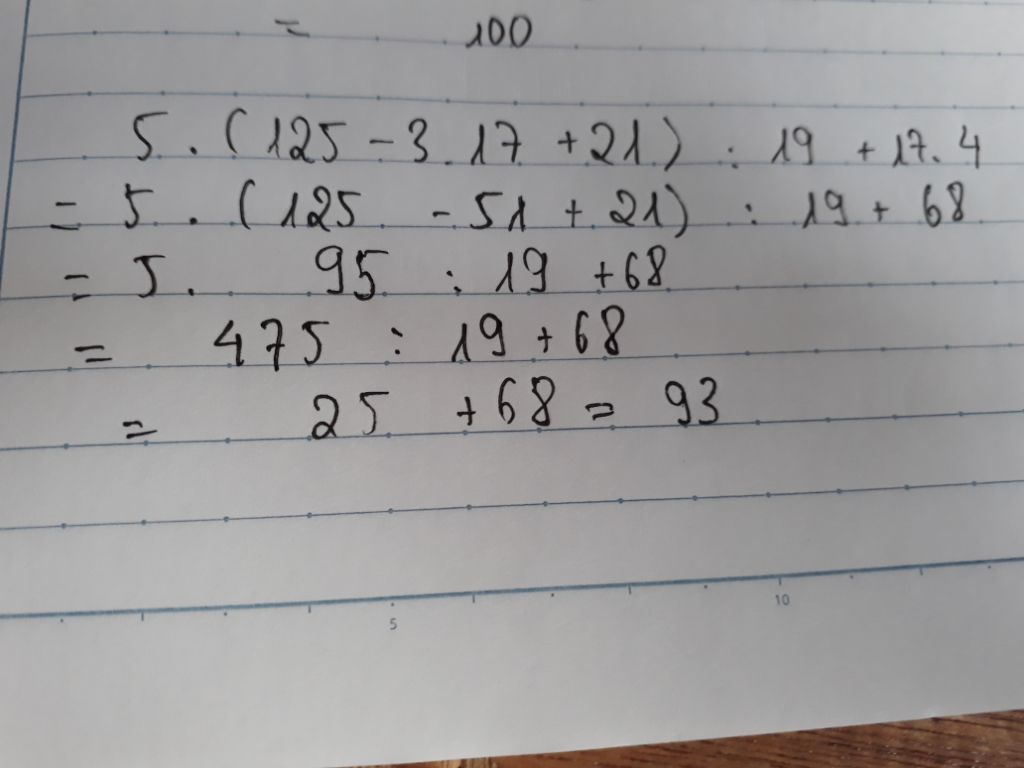 = 100
5 . (125 - 3 . 17 + 21) : 19 + 17 . 4
= 5 . (125 - 51 + 21) : 19 + 68
= 5 . 95 : 19 + 68
= 475 : 19 + 68
= 25 + 68 = 93
5 10